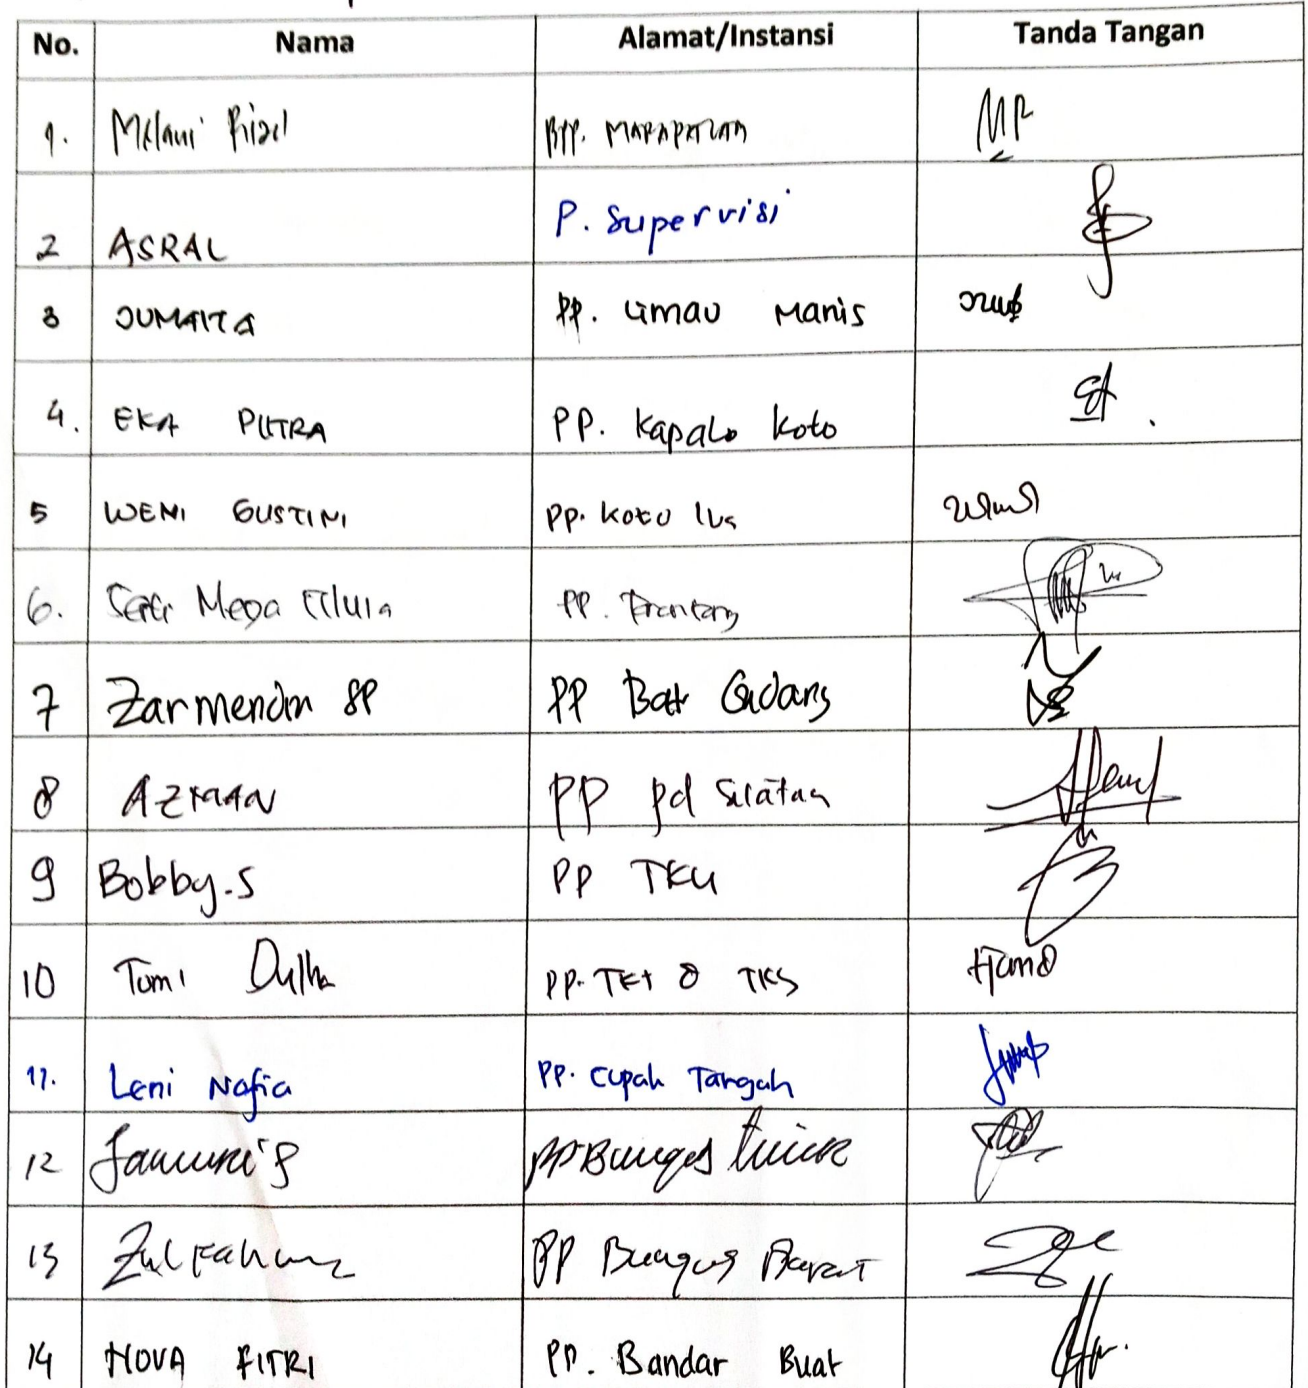 No. Nama Alamat/Instansi Tanda Tangan
1. Melani Rizal BPP. MARAPALAM MR
2 ASRAL P. Supervisi
3 JUMAITA PP. Limau Manis
4. EKA PUTRA PP. Kapalo Koto
5 WENI GUSTINI PP. Koto lua
6. Mega PP.
7 Zarmendri SP PP Gadang
8 AZMAN PP pd Selatan
9 Bobby.S PP TKU
10 Tomi PP. TKT & TKS
11. Leni Nofia PP. Cupak Tangah
12 PP Bungus
13 PP Bungus Barat
14 NOVA FITRI PP. Bandar Buat